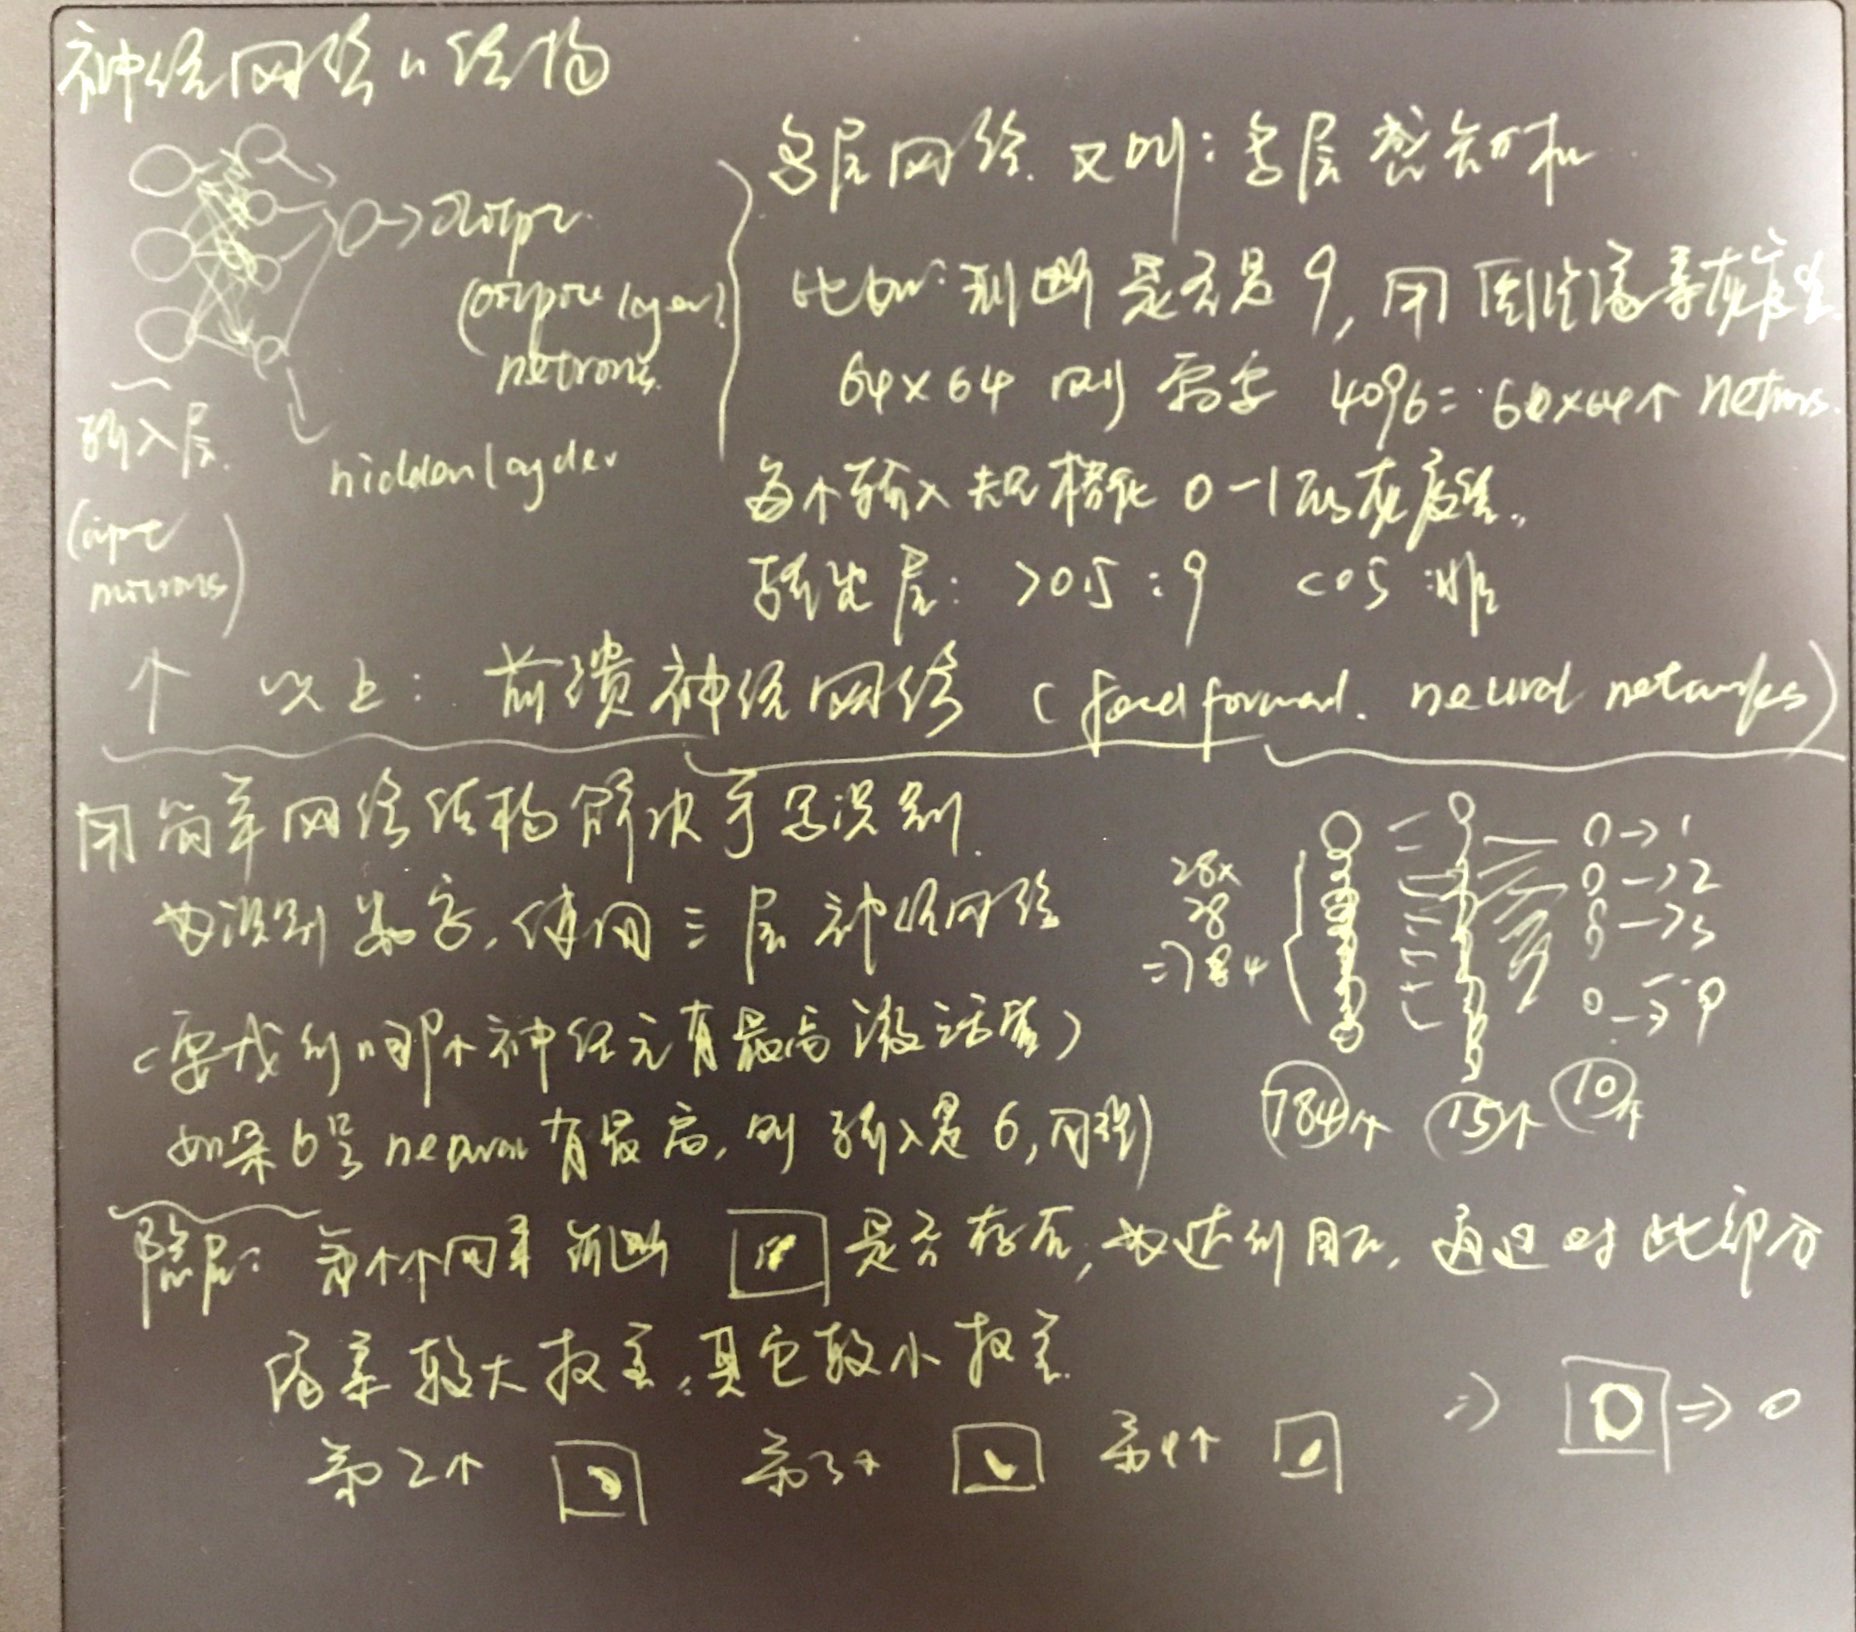 神经网络的结构
→ output
(output layer)
netrons.
输入层
(inpt
hidden layder
多层网络 又叫：多层感知机
比如：判断是否是9，用图片像素灰度值.
64×64 则需要 4096= 64×64个 netrons.
每个输入规格化 0-1的灰度值。
输出层：>0.5：9 <0.5：非
↑ 以上：前溃神经网络 (feed forward. neural networks)
用简单网络结构解决手写识别
为识别数字，使用三层神经网络
(要找到哪个神经元有最高激活值)
如果6号nearon有最高，则输入是6，同理)
28×
28
=>784
→1
→2
→3
→9
784个 15个 10个
隐层：第个 是否存在，为达到目的，通过对此部分
像素较大权重，其它较小权重.
第2个 第3个 第4个 => => 0